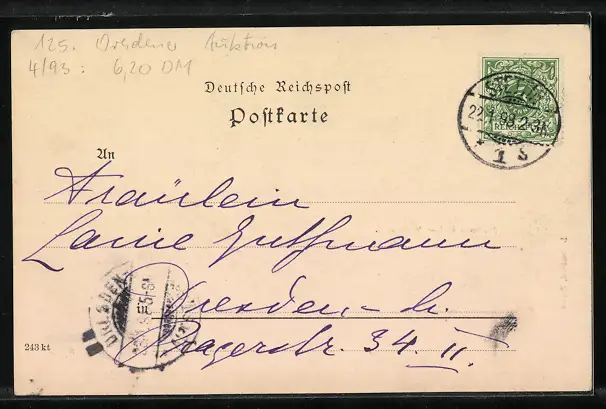 125. Dresdener Auktion
4/93: 6,20 DM
Deutsche Reichspost
Postkarte
STETTIN
22. 1.98.2-3N.
* 1 s
REICHSPOST
An
Fräulein
Guthmann
Dresden - A.
Pragerstr. 34 II.
DRESDEN
243 kt